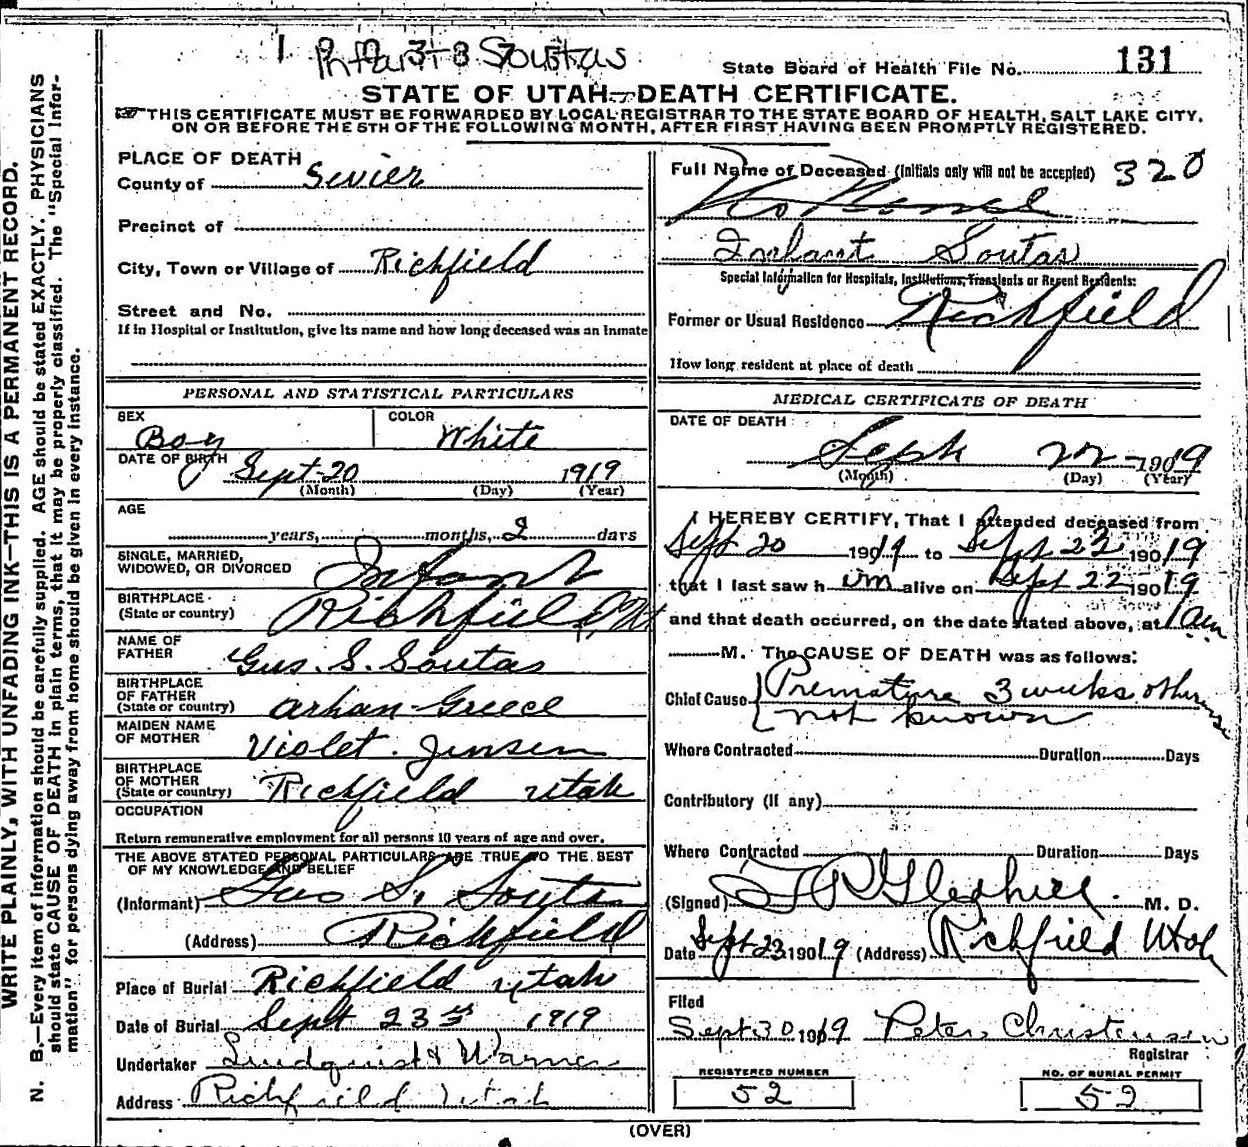 1 Infant Soutas
State Board of Health File No. 131
STATE OF UTAH—DEATH CERTIFICATE.
THIS CERTIFICATE MUST BE FORWARDED BY LOCAL REGISTRAR TO THE STATE BOARD OF HEALTH, SALT LAKE CITY,
ON OR BEFORE THE 5TH OF THE FOLLOWING MONTH, AFTER FIRST HAVING BEEN PROMPTLY REGISTERED.
WRITE PLAINLY, WITH UNFADING INK—THIS IS A PERMANENT RECORD.
N. B.—Every item of information should be carefully supplied. AGE should be stated EXACTLY. PHYSICIANS
should state CAUSE OF DEATH in plain terms, that it may be properly classified. The "Special Infor-
mation" for persons dying away from home should be given in every instance.
PLACE OF DEATH
County of Sevier
Precinct of
City, Town or Village of Richfield
Street and No.
If in Hospital or Institution, give its name and how long deceased was an Inmate
PERSONAL AND STATISTICAL PARTICULARS
SEX COLOR
Boy White
DATE OF BIRTH
Sept 20 1919
(Month) (Day) (Year)
AGE
years, months, 2 days
SINGLE, MARRIED,
WIDOWED, OR DIVORCED Infant
BIRTHPLACE
(State or country) Richfield, Ut
NAME OF
FATHER Gus. S. Soutas
BIRTHPLACE
OF FATHER
(State or country) Greece
MAIDEN NAME
OF MOTHER Violet Jensen
BIRTHPLACE
OF MOTHER
(State or country) Richfield Utah
OCCUPATION
Return remunerative employment for all persons 10 years of age and over.
THE ABOVE STATED PERSONAL PARTICULARS ARE TRUE TO THE BEST
OF MY KNOWLEDGE AND BELIEF
(Informant) Gus S. Soutas
(Address) Richfield
Place of Burial Richfield Utah
Date of Burial Sept 23rd 1919
Undertaker Lundquist & Warner
Address Richfield Utah
Full Name of Deceased (Initials only will not be accepted) 320
No Name
Infant Soutas
Special Information for Hospitals, Institutions, Transients or Recent Residents:
Former or Usual Residence Richfield
How long resident at place of death
MEDICAL CERTIFICATE OF DEATH
DATE OF DEATH
Sept 22 1919
(Month) (Day) (Year)
I HEREBY CERTIFY, That I attended deceased from
Sept 20 1919 to Sept 22 1919
that I last saw h im alive on Sept 22 1919
and that death occurred, on the date stated above, at 1 am
M. The CAUSE OF DEATH was as follows:
Chief Cause Premature 3 weeks otherwise
not known
Where Contracted Duration Days
Contributory (If any)
Where Contracted Duration Days
(Signed) Gledhill M. D.
Date Sept 23 1919 (Address) Richfield Utah
Filed
Sept 30 1919 Peter Christensen
Registrar
REGISTERED NUMBER NO. OF BURIAL PERMIT
52 52
(OVER)